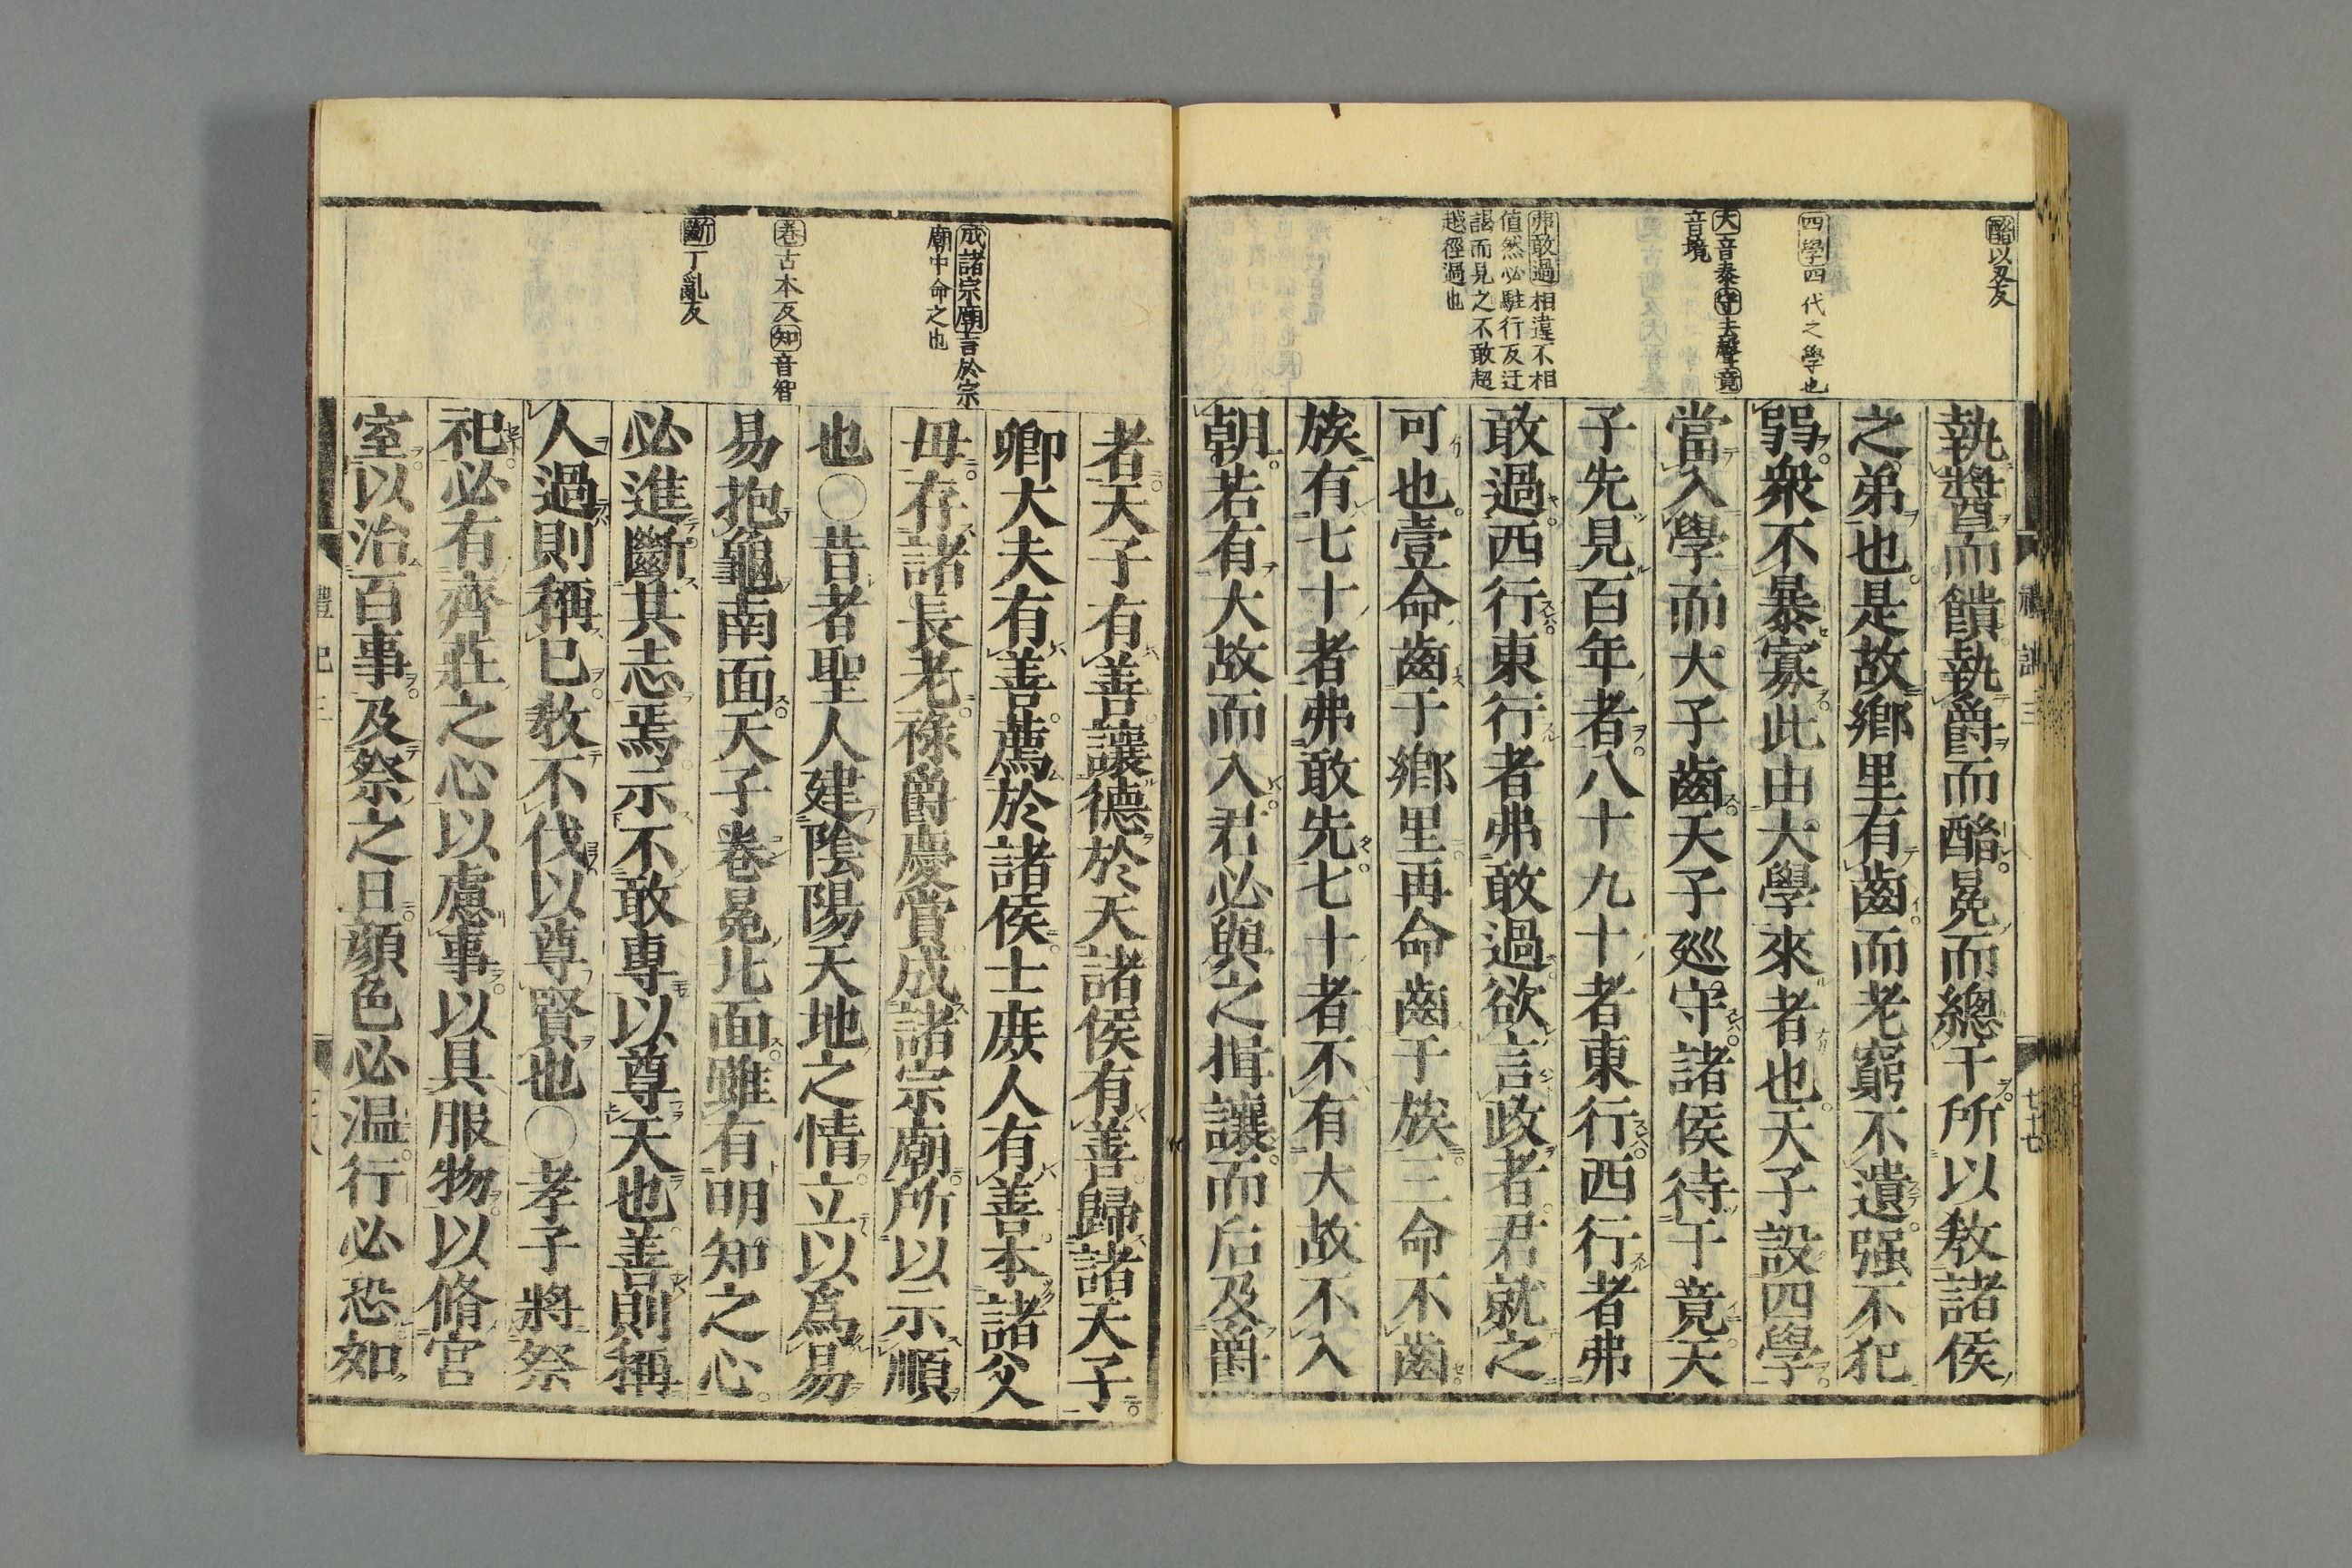 酳以刄反
四學四代之學也
大音泰守去聲竟
音境
弗敢過相違不相
値然必駐行反迂
謁而見之不敢超
越徑過也
執醬而饋執爵而酳冕而總干所以教諸侯
之弟也是故鄉里有齒而老窮不遺强不犯
弱衆不暴寡此由大學來者也天子設四學
當入學而大子齒天子廵守諸侯待于竟天
子先見百年者八十九十者東行西行者弗
敢過西行東行者弗敢過欲言政者君就之
可也壹命齒于鄉里再命齒于族三命不齒
族有七十者弗敢先七十者不有大故不入
朝若有大故而入君必與之揖讓而后及爵
禮記三
廿七
成諸宗廟言於宗
廟中命之也
卷古本反知音智
斷丁亂反
者天子有善讓德於天諸侯有善歸諸天子
卿大夫有善薦於諸侯士庶人有善本諸父
母存諸長老祿爵慶賞成諸宗廟所以示順
也○昔者聖人建陰陽天地之情立以爲易
易抱龜南面天子卷冕北面雖有明知之心
必進斷其志焉示不敢專以尊天也善則稱
人過則稱已教不伐以尊賢也○孝子將祭
祀必有齊莊之心以慮事以具服物以脩宮
室以治百事及祭之日顏色必温行必恐如
禮記三